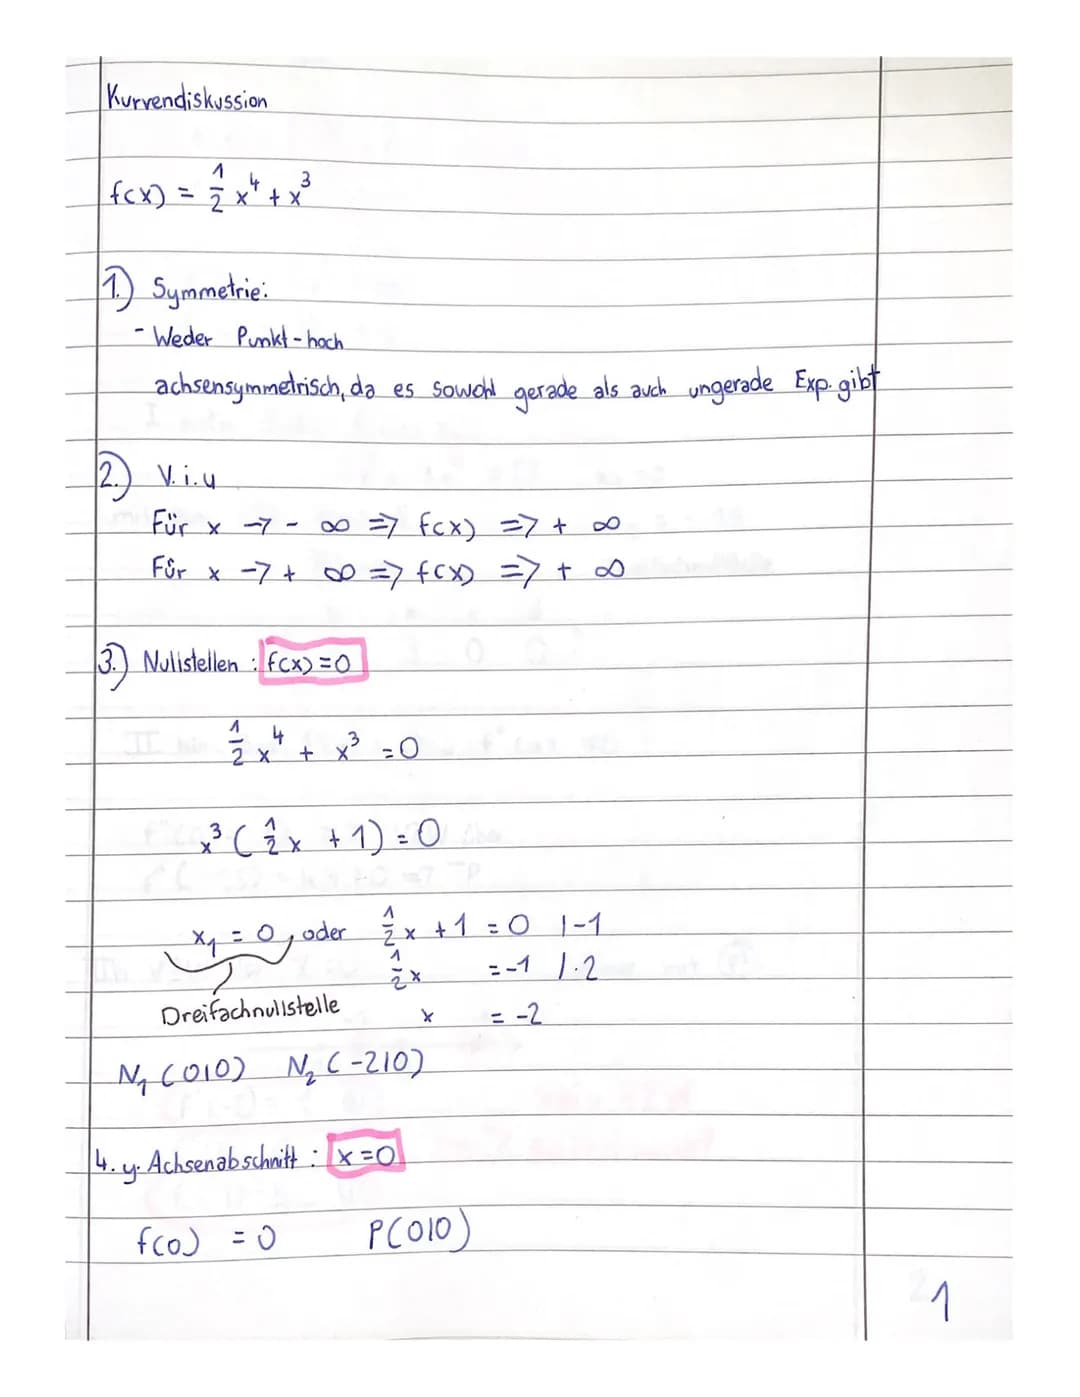 Kurvendiskussion
f(x) = 1/2 x⁴ + x³
1.) Symmetrie:
- Weder Punkt-hoch
achsensymmetrisch, da es sowohl gerade als auch ungerade Exp. gibt
2.) V.i.u
Für x -> - ∞ => f(x) => + ∞
Für x -> + ∞ => f(x) => + ∞
3.) Nullstellen : f(x) = 0
1/2 x⁴ + x³ = 0
x³ ( 1/2 x + 1) = 0
x₁ = 0, oder 1/2 x + 1 = 0 |-1
1/2 x = -1 |·2
Dreifachnullstelle x = -2
N₁ (0|0) N₂ (-2|0)
4. y. Achsenabschnitt : x = 0
f(0) = 0 P(0|0)
1